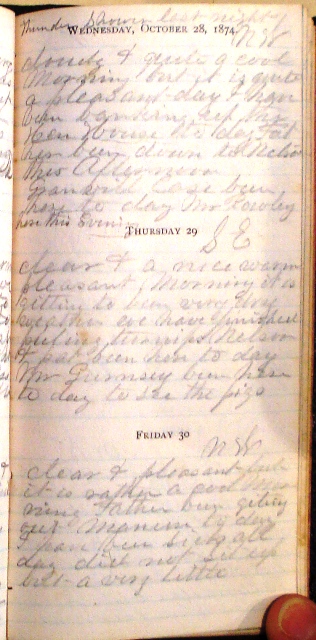 Thunder Shower last night
WEDNESDAY, OCTOBER 28, 1874.
N W
cloudy & quite a cool
morning but it is quite
a pleasant day I have
been banking up the
Hen House to day Pat
has been down to Nelson
this Afternoon
been
here to day Mr Cowley
here this Evening
THURSDAY 29
S E
clear & a nice warm
pleasant Morning it is
getting to been very dry
weather we have finished
puling turnips Nelson
& Pat been here to day
Mr Gurnsey been here
to day to see the pigs
FRIDAY 30
N W
clear & pleasant but
it is rather a cool Mor
ning Father been geting
out Manure to day
I have been sick all
day did not set up
but a very little